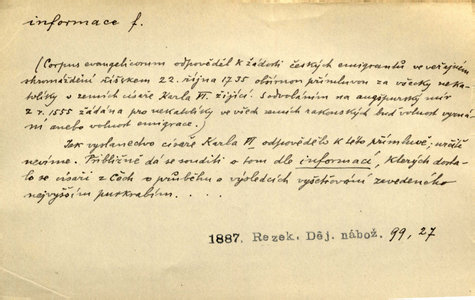 informace f.
(Corpus evangelicorum odpověděl k žádosti českých emigrantů ve veřejném
shromáždění tištěném 22. října 1735 obšírnou přímluvou za všecky neka-
tolíky v zemích císaře Karla VI. žijící. S odvoláním na augšpurský mír
z r. 1555 žádána pro nekatolíky ve všech zemích rakouských buď volnost vyzná-
ní anebo volnost emigrace.)
Jak vyslanectvo císaře Karla VI odpovědělo k této přímluvě, určitě
nevíme. Přibližně dá se souditi o tom dle informací, kterých dosta-
lo se císaři z Čech o průběhu a výsledcích vyšetřování zavedeného
nejvyšším purkrabím. . . . .
1887. Rezek. Děj. nábož. 99, 27